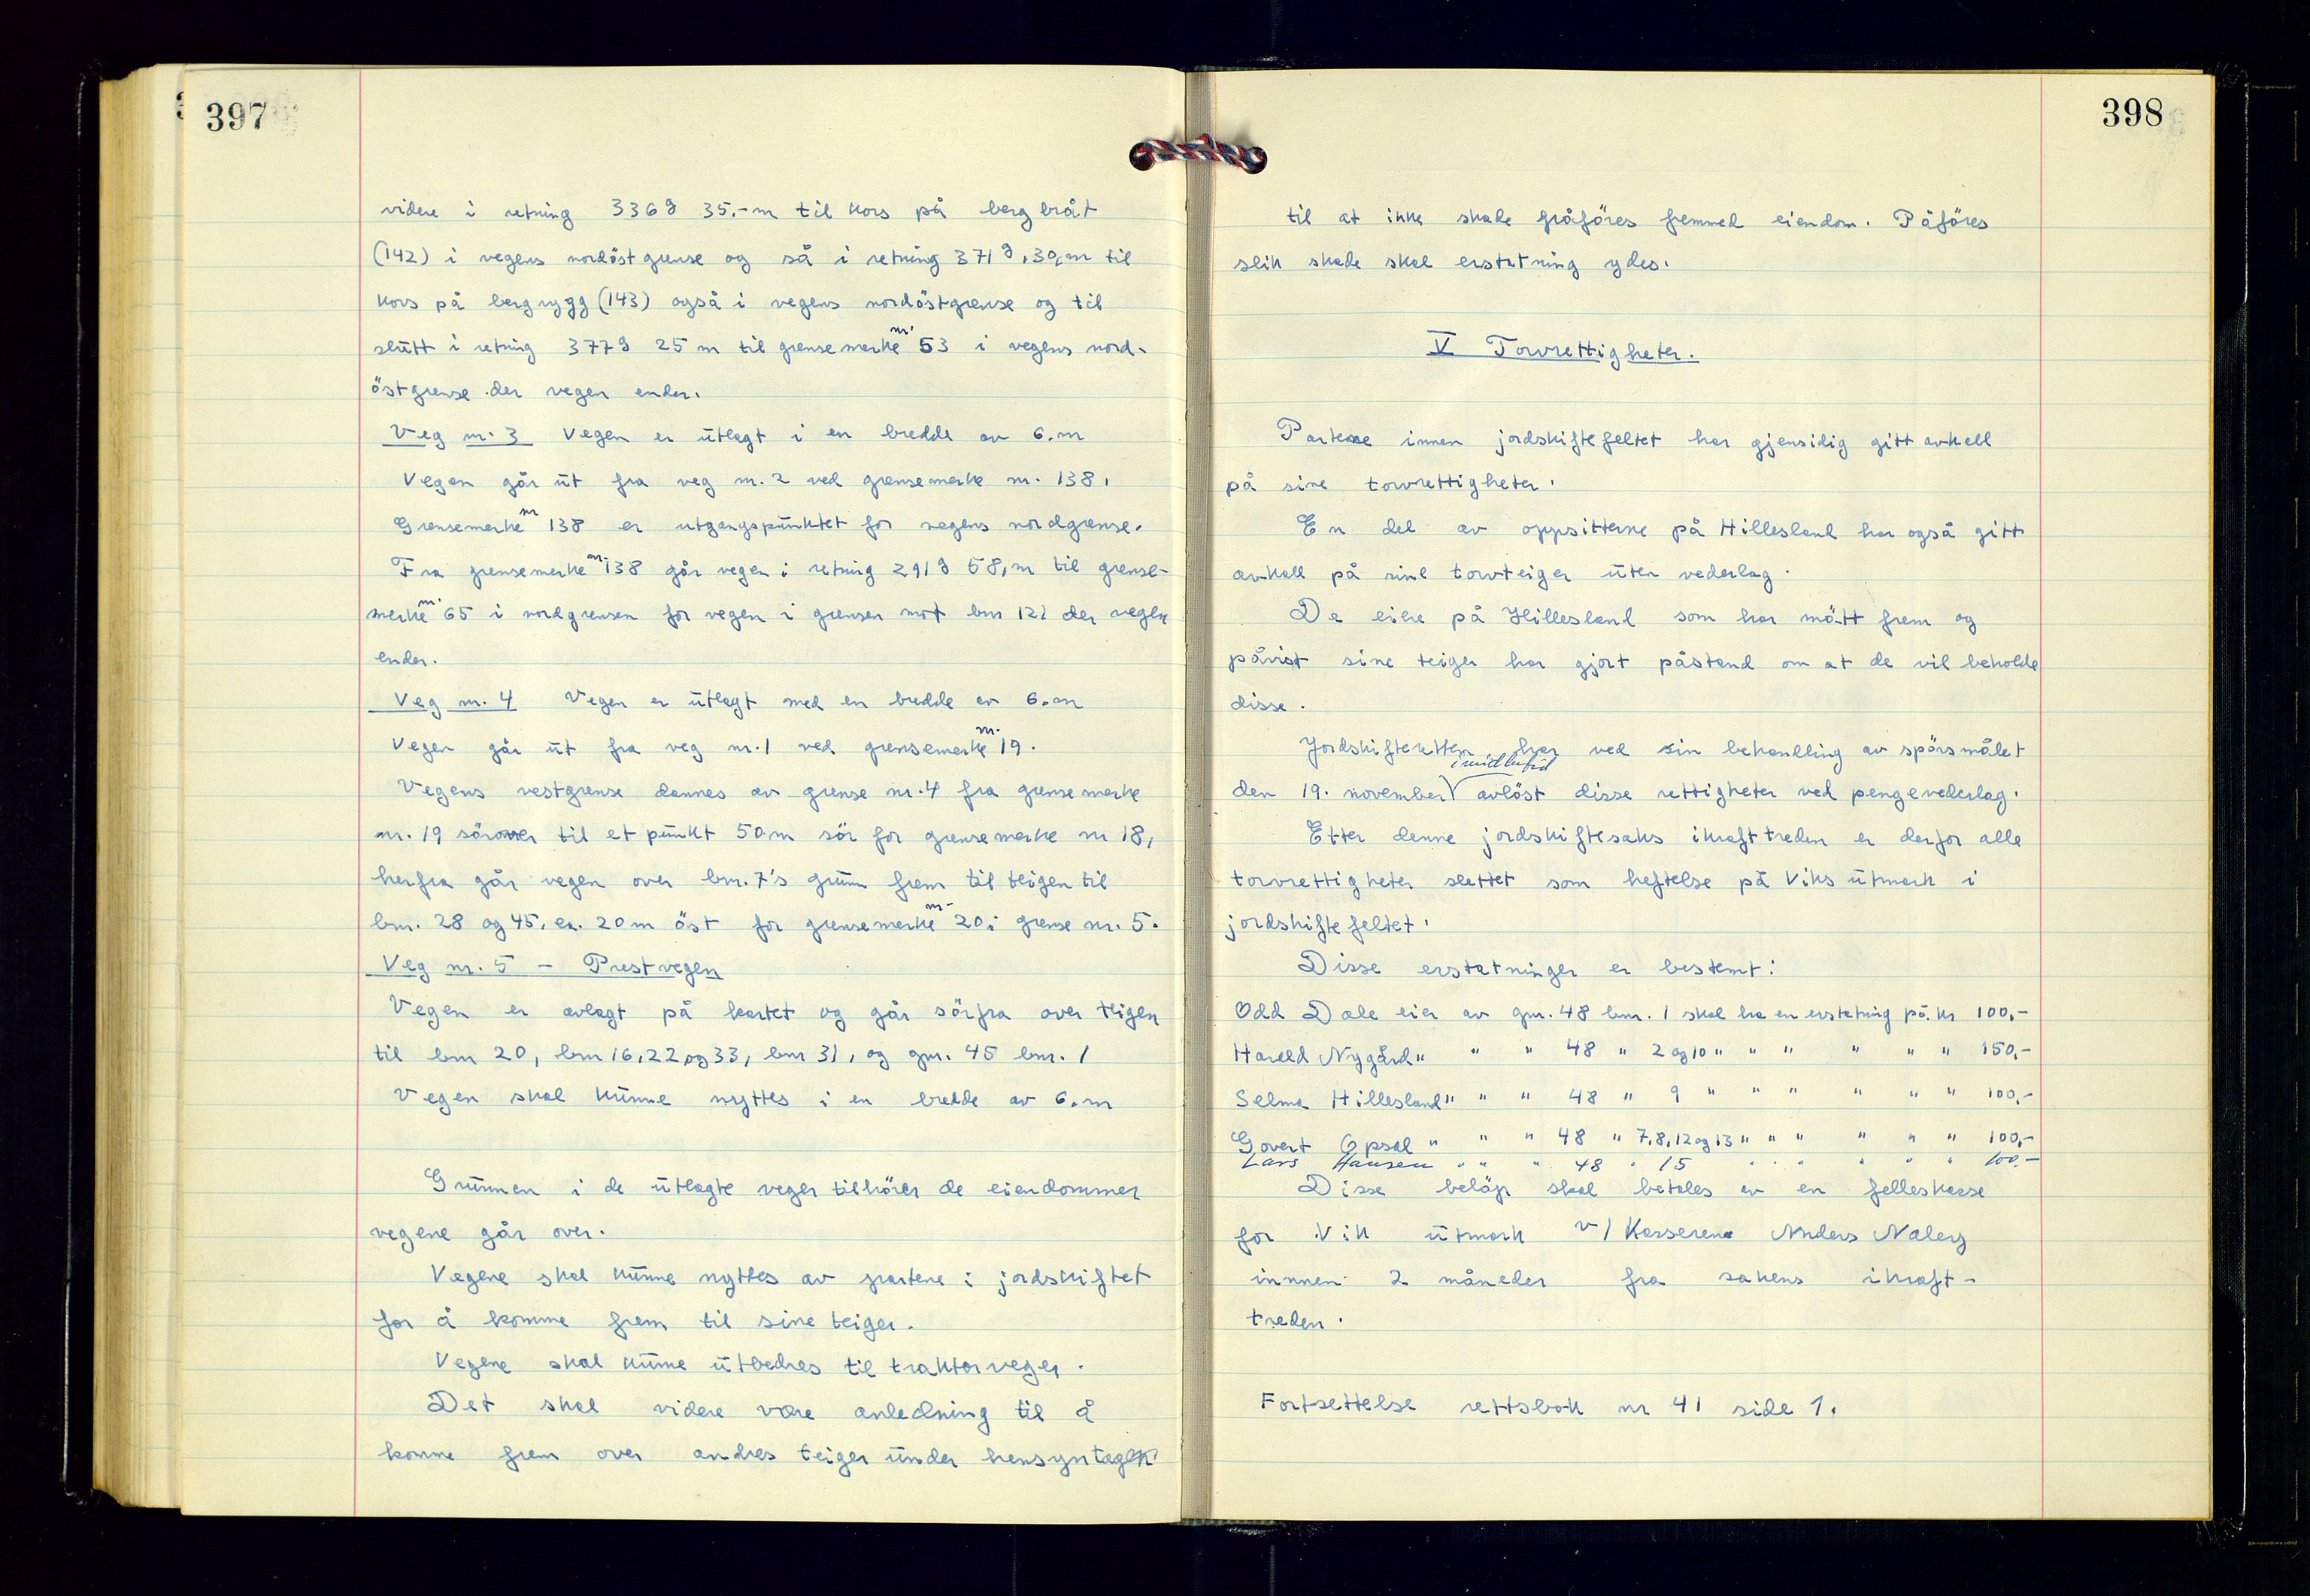 397
videre i retning 336g 35.-m til kors på berg bråt
(142) i vegens nordöstgrense og så i retning 371g, 30,m til
kors på bergrygg (143) også i vegens nordöstgrense og til
slutt i retning 377g 25 m til grensemerke nr. 53 i vegens nord-
östgrense der vegen ender.
Veg nr. 3 Vegen er ūtlagt i en bredde av 6.m
Vegen går ūt fra veg nr. 2 ved grensemerke nr. 138.
Grensemerke nr 138 er utgangspūnktet for vegens nordgrense.
Fra grensemerke nr. 138 går vegen i retning 291g 58,m til grense-
merke nr. 65 i nordgrensen for vegen i grensen mot bnr 122 der vegen
ender.
Veg nr. 4 Vegen er ūtlagt med en bredde av 6.m
Vegen går ūt fra veg nr. 1 ved grensemerke nr. 19.
Vegens vestgrense dannes av grense nr. 4 fra grensemerke
nr. 19 sörover til et pūnkt 50m sör for grensemerke nr 18,
herfra går vegen over bnr. 7's grūnn frem til teigen til
bnr. 28 og 45, ca. 20m öst for grensemerke nr. 20 i grense nr. 5.
Veg nr. 5 - Prestvegen
Vegen er avlagt på kartet og går sörfra over teigen
til bnr 20, bnr 16,22,og 33, bnr 31, og gnr. 45 bnr. 1
Vegen skal kūnne nyttes i en bredde av 6.m
Grūnnen i de ūtlagte veger tilhörer de eiendommer
vegene går over.
Vegene skal kūnne nyttes av partene i jordskiftet
for å komme frem til sine teiger.
Vegene skal kūnne ūtbedres til traktorveger.
Det skal videre være anledning til å
komme frem over andres teiger ūnder hensyntagen
398
til at ikke skade påföres fremmed eiendom. Påföres
slik skade skal erstatning ydes.
V Torvrettigheter.
Partene innen jordskiftefeltet har gjensidig gitt avkall
på sine torvrettigheter.
En del av oppsitterne på Hillesland har også gitt
avkall på sine torvteiger ūten vederlag.
De eiere på Hillesland som har mött frem og
påvist sine teiger har gjort påstand om at de vil beholde
disse.
Jordskifteretten har ved sin behandling av spörsmålet
den 19. november imidlertid avlöst disse rettigheter ved pengevederlag.
Etter denne jordskiftesaks ikrafttreden er derfor alle
torvrettigheter slettet som heftelse på Viks ūtmark i
jordskiftefeltet.
Disse erstatninger er bestemt:
Odd Dale eier av gnr. 48 bnr. 1 skal ha en erstatning på kr 100,-
Harald Nygård " " " 48 " 2 og 10 " " " " " " 150,-
Selma Hillesland " " " 48 " 9 " " " " " " 100,-
Govert Opsal " " " 48 " 7,8,12 og 13 " " " " " " 100,-
Lars Hansen " " " 48 " 15 " " " " " " 100,-
Disse belöp skal betales av en felleskasse
for Vik ūtmark v/ Kasserene Anders Nalery
innen 2 måneder fra sakens ikraft-
treden.
Fortsettelse rettsbok nr 41 side 1.